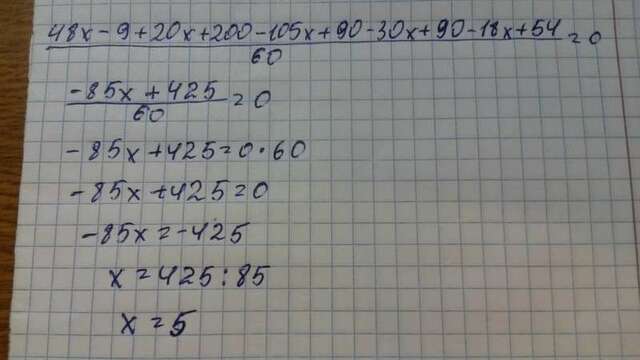 48x-9+20x+200-105x+90-30x+90-18x+54/60=0
-85x+425/60=0
-85x+425=0·60
-85x+425=0
-85x=-425
x=425:85
x=5